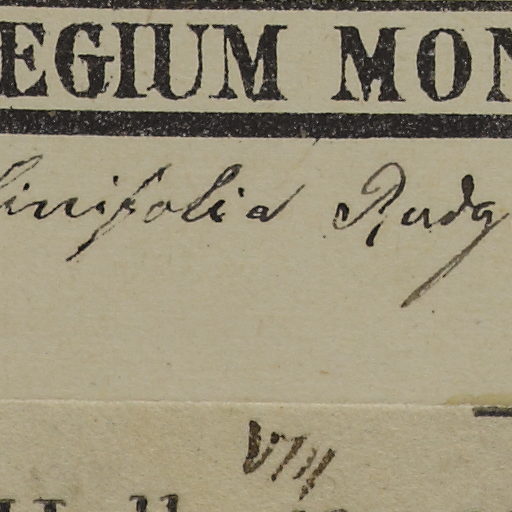 EGIUM MON
linifolia Rudg
VIII